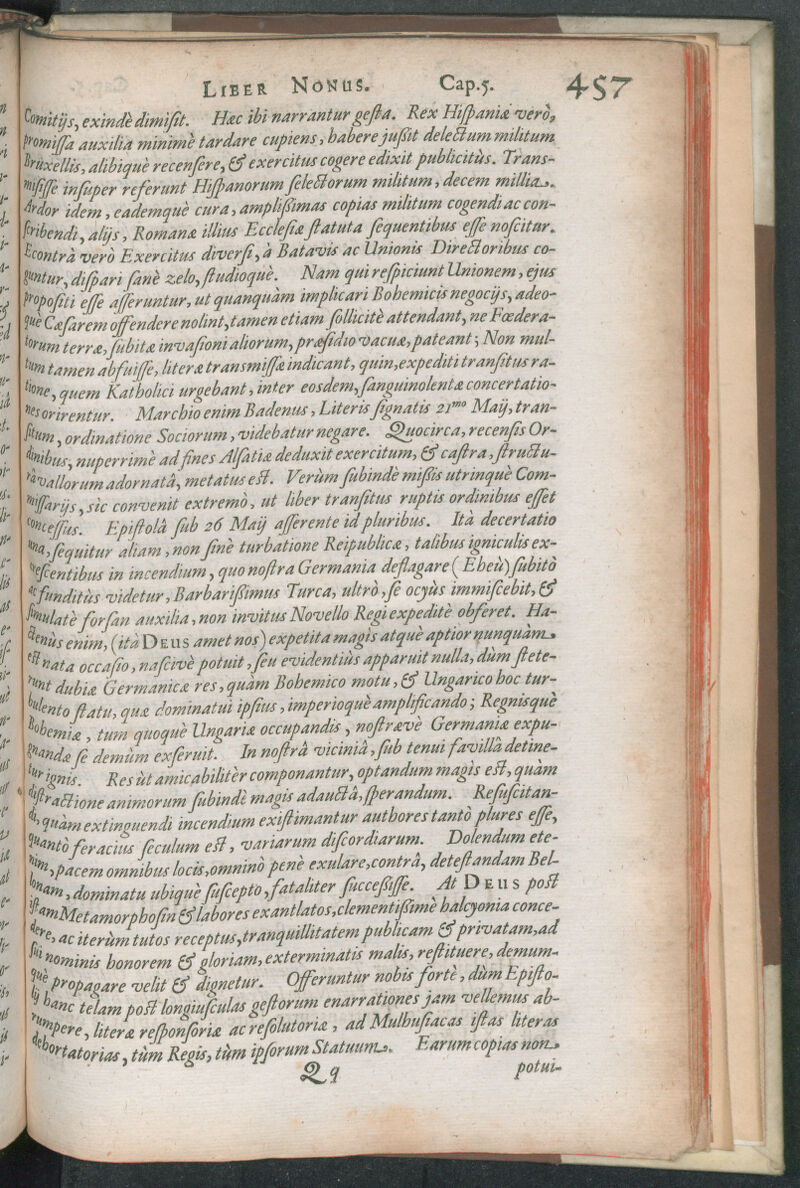 LIBER NONUS. Cap.5. 457
Comitijs, exindè dimisit. Hæc ibi narrantur gesta. Rex Hispaniæ verò,
promissa auxilia minimè tardare cupiens, habere jußit delectum militum
Bruxellis, alibiquè recensere, & exercitus cogere edixit publicitùs. Trans-
misisse insuper referunt Hispanorum selectorum militum, decem millia.
Ardor idem, eademquè cura, amplißimas copias militum cogendi ac con-
scribendi, alijs, Romanæ illius Ecclesiæ statuta sequentibus esse noscitur.
Econtrà verò Exercitus diversi, à Batavis ac Unionis Directoribus co-
guntur, dispari sanè zelo, studioquè. Nam qui respiciunt Unionem, ejus
propositi esse asseruntur, ut quanquàm implicari Bohemicis negocijs, adeo-
què Cæsarem offendere nolint, tamen etiam sollicitè attendant, ne Fœdera-
torum terræ, subitæ invasioni aliorum, præsidio vacuæ, pateant; Non mul-
tum tamen abfuisse, literæ transmissæ indicant, quin, expediti transitus ra-
tione, quem Katholici urgebant, inter eosdem, sanguinolentæ concertatio-
nes orirentur. Marchio enim Badenus, Literis signatis 21mo Maij, tran-
situm, ordinatione Sociorum, videbatur negare. Quocirca, recensis Or-
dinibus, nuperrimè ad fines Alsatiæ deduxit exercitum, & castra, structu-
râ vallorum adornatâ, metatus est. Verùm subindè mißis utrinquè Com-
missarijs, sìc convenit extremò, ut liber transitus ruptis ordinibus esset
concessus. Epistolâ sub 26 Maij asserente id pluribus. Ità decertatio
una, sequitur aliam, non sinè turbatione Reipublicæ, talibus igniculis ex-
crescentibus in incendium, quo nostra Germania deflagare (Eheù) subitò
ac funditùs videtur, Barbarißimus Turca, ultrò, se ocyùs immiscebit, &
simulatè forsan auxilia, non invitus Novello Regi expeditè obferet. Ha-
ctenùs enim, (ità DEUS amet nos) expetita magis atquè aptior nunquàm
est nata occasio, nascivè potuit, seu evidentiùs apparuit nulla, dùm stete-
runt dubiæ Germanicæ res, quàm Bohemico motu, & Ungarico hoc tur-
bulento statu, quæ dominatui ipsius, imperioquè amplificando; Regnisquè
Bohemiæ, tum quoquè Ungariæ occupandis, nostrævè Germaniæ expu-
gnandæ se demùm exseruit. In nostrâ viciniâ, sub tenui favillâ detine-
tur ignis. Res ùt amicabilitèr componantur, optandum magis est, quàm
distractione animorum subindè magis adauctâ, sperandum. Resuscitan-
di, quàm extinguendi incendium existimantur authores tantò plures esse,
quantò feracius seculum est, variarum discordiarum. Dolendum ete-
nim, pacem omnibus locis, omninò penè exulare, contrâ, detestandam Bel-
lonam, dominatu ubiquè suscepto, fataliter succeßisse. At DEUS post
istam Metamorphosin & labores exantlatos, clementißimè halcyonia conce-
dere, ac iterùm tutos receptus, tranquillitatem publicam & privatam, ad
sui nominis honorem & gloriam, exterminatis malis, restituere, demum-
què propagare velit & dignetur. Offeruntur nobis fortè, dùm Episto-
lij hanc telam post longiusculas gestorum enarrationes jam vellemus ab-
rumpere, literæ responsoriæ ac resolutoriæ, ad Mulhusiacas istas literas
dehortatorias, tùm Regis, tùm ipsorum Statuum. Earum copias non
Qq potui-